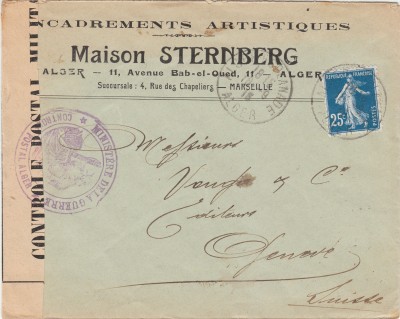 ENCADREMENTS ARTISTIQUES
Maison STERNBERG
ALGER — 11, Avenue Bab-el-Oued, 11 — ALGER
Succursale : 4, Rue des Chapeliers — MARSEILLE
ALGER
REPUBLIQUE FRANÇAISE
25c
POSTES
CONTROLE POSTAL MILIT
MINISTÈRE DE LA GUERRE
CONTROLE POSTAL ALGER
Messieurs
& Cie
Editeurs
Genève
Suisse